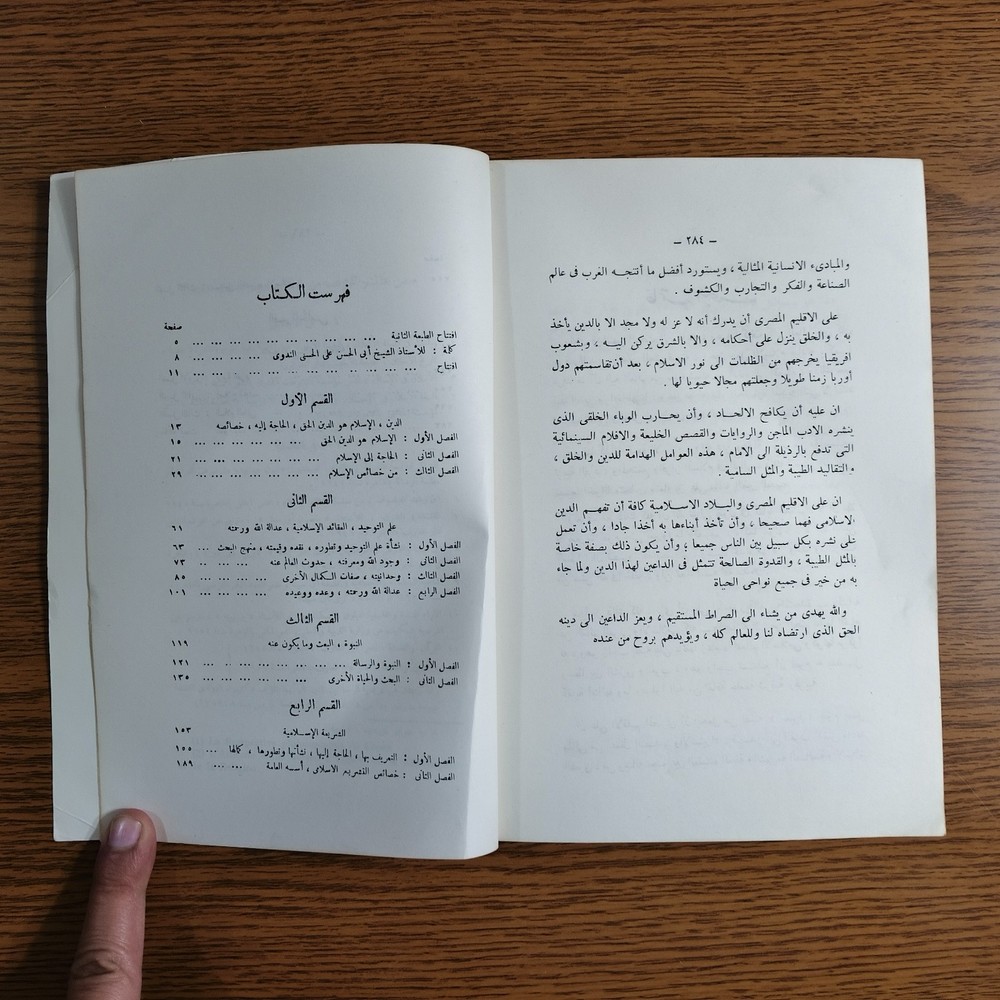 — ٢٨٤ —
والمبادىء الانسانية المثالية ، ويستورد أفضل ما أنتجه الغرب فى عالم
الصناعة والفكر والتجارب والكشوف .
على الاقليم المصرى أن يدرك أنه لا عز له ولا مجد الا بالدين يأخذ
به ، والخلق ينزل على أحكامه ، والا بالشرق يركن اليه ، وبشعوب
افريقيا يخرجهم من الظلمات الى نور الاسلام ، بعد أن تقاسمتهم دول
أوربا زمنا طويلا وجعلتهم مجالا حيويا لها .
ان عليه أن يكافح الالحاد ، وأن يحارب الوباء الخلقى الذى
ينشره الادب الماجن والروايات والقصص الخليعة والافلام السينمائية
التى تدفع بالرذيلة الى الامام ، هذه العوامل الهدامة للدين والخلق ،
والتقاليد الطيبة والمثل السامية .
ان على الاقليم المصرى والبلاد الاسلامية كافة أن تفهم الدين
الاسلامى فهما صحيحا ، وأن تأخذ أبناءها به أخذا جادا ، وأن تعمل
على نشره بكل سبيل بين الناس جميعا ؛ وأن يكون ذلك بصفة خاصة
بالمثل الطيبة ، والقدوة الصالحة تتمثل فى الداعين لهذا الدين ولما جاء
به من خير فى جميع نواحى الحياة
والله يهدى من يشاء الى الصراط المستقيم ، ويعز الداعين الى دينه
الحق الذى ارتضاه لنا وللعالم كله ، ويؤيدهم بروح من عنده
فهرست الكتاب
صفحة
افتتاح الطبعة الثانية ... ٥
كلمة : للأستاذ الشيخ أبى الحسن على الحسنى الندوى ... ٨
افتتاح ... ١١
القسم الأول
الدين ، الإسلام هو الدين الحق ، الحاجة إليه ، خصائصه ١٣
الفصل الأول : الإسلام هو الدين الحق ... ١٥
الفصل الثانى : الحاجة إلى الإسلام ... ٢١
الفصل الثالث : من خصائص الإسلام ... ٢٩
القسم الثانى
علم التوحيد ، العقائد الإسلامية ، عدالة الله ورحمته ٦١
الفصل الأول : نشأة علم التوحيد وتطوره ، نقده وقيمته ، منهج البحث ... ٦٣
الفصل الثانى : وجود الله ومعرفته ، حدوث العالم عنه ... ٧٣
الفصل الثالث : وحدانيته ، صفات الكمال الأخرى ... ٨٥
الفصل الرابع : عدالة الله ورحمته ، وعده ووعيده ... ١٠١
القسم الثالث
النبوة ، البعث وما يكون عنه ١١٩
الفصل الأول : النبوة والرسالة ... ١٢١
الفصل الثانى : البعث والحياة الأخرى ... ١٣٥
القسم الرابع
الشريعة الإسلامية ١٥٣
الفصل الأول : التعريف بها ، الحاجة إليها ، نشأتها وتطورها ، كمالها ... ١٥٥
الفصل الثانى : خصائص التشريع الاسلامى ، أسسه العامة ... ١٨٩